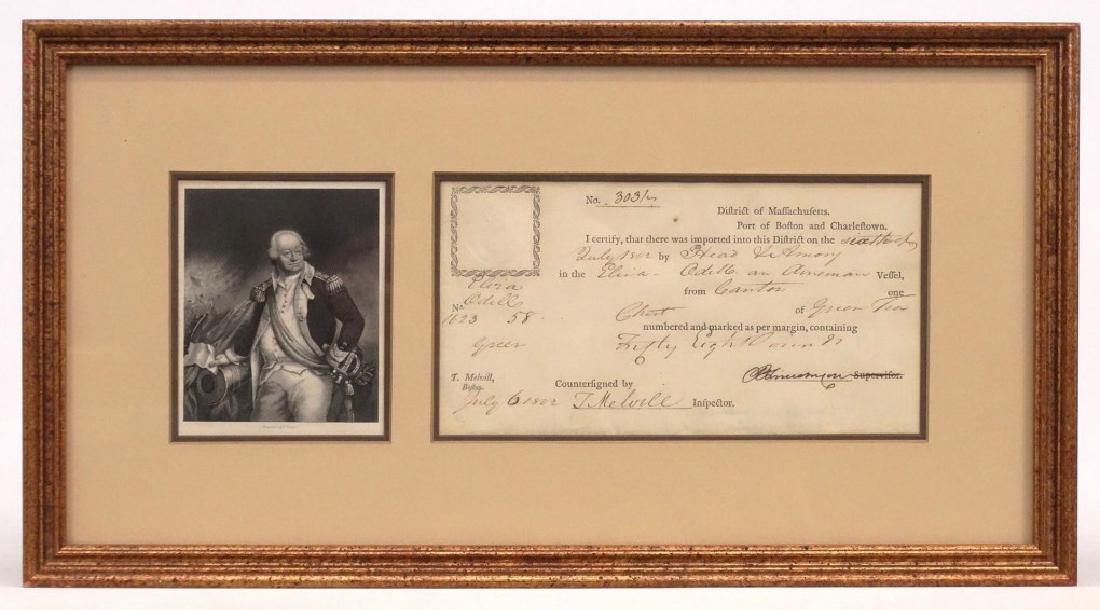 No. 303
Diſtrict of Maſſachuſetts.
Port of Boſton and Charleſtown.
I certify, that there was imported into this Diſtrict on the sixth
July 1802 by Head & Amory
in the Eliza - Odell an American Veſſel,
from Canton one
Chest of Green Tea
numbered and marked as per margin, containing
Fifty Eight Pounds
Superviſor.
Eliza
Odell
No
1623 58
Green
T. Melvill,
Boſton.
July 6 1802
Counterſigned by
T Melvill Inſpector.